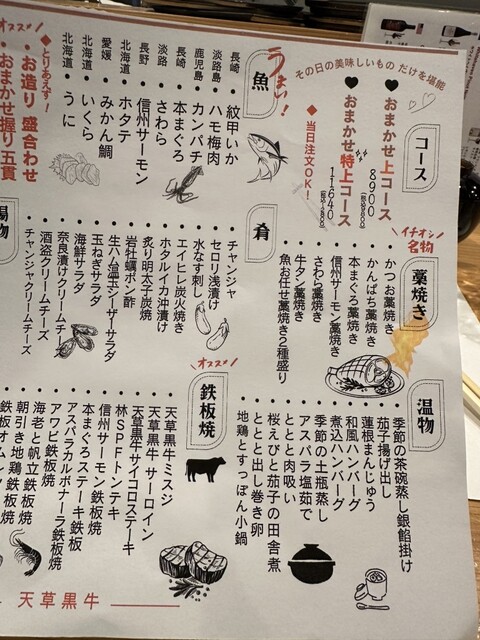 その日の美味しいもの だけを堪能
コース
♥ おまかせ上コース
8900
♥ おまかせ特上コース
11640
◆ 当日注文OK!
うまい!
魚
長崎・紋甲いか
淡路島・ハモ梅肉
鹿児島・カンパチ
長崎・本まぐろ
淡路・さわら
長野・信州サーモン
北海道・ホタテ
愛媛・みかん鯛
北海道・いくら
北海道・うに
オススメ!
◆とりあえず!
・お造り 盛合わせ
・おまかせ握り五貫
イチオシ名物
藁焼き
かつお藁焼き
かんぱち藁焼き
本まぐろ藁焼き
信州サーモン藁焼き
さわら藁焼き
牛タン藁焼き
魚お任せ藁焼き2種盛り
肴
チャンジャ
セロリ浅漬け
水なす刺し
エイヒレ炭火焼き
ホタルイカ沖漬け
炙り明太子炭焼
岩牡蠣ポン酢
生ハム温玉シーザーサラダ
玉ねぎサラダ
海鮮サラダ
奈良漬けクリームチーズ
酒盗クリームチーズ
チャンジャクリームチーズ
温物
季節の茶碗蒸し銀餡掛け
茄子揚げ出し
蓮根まんじゅう
和風ハンバーグ
煮込ハンバーグ
季節の土瓶蒸し
アスパラ塩茹で
ととと肉吸い
桜えびと茄子の田舎煮
ととと出し巻き卵
地鶏とすっぽん小鍋
オススメ!
鉄板焼
天草黒牛ミスジ
天草黒牛 サーロイン
天草黒牛サイコロステーキ
林SPFトンテキ
信州サーモン鉄板焼
本まぐろステーキ鉄板
アスパラカルボナーラ鉄板焼
アワビ鉄板焼
海老と帆立鉄板焼
朝引き地鶏鉄板焼
天草黒牛